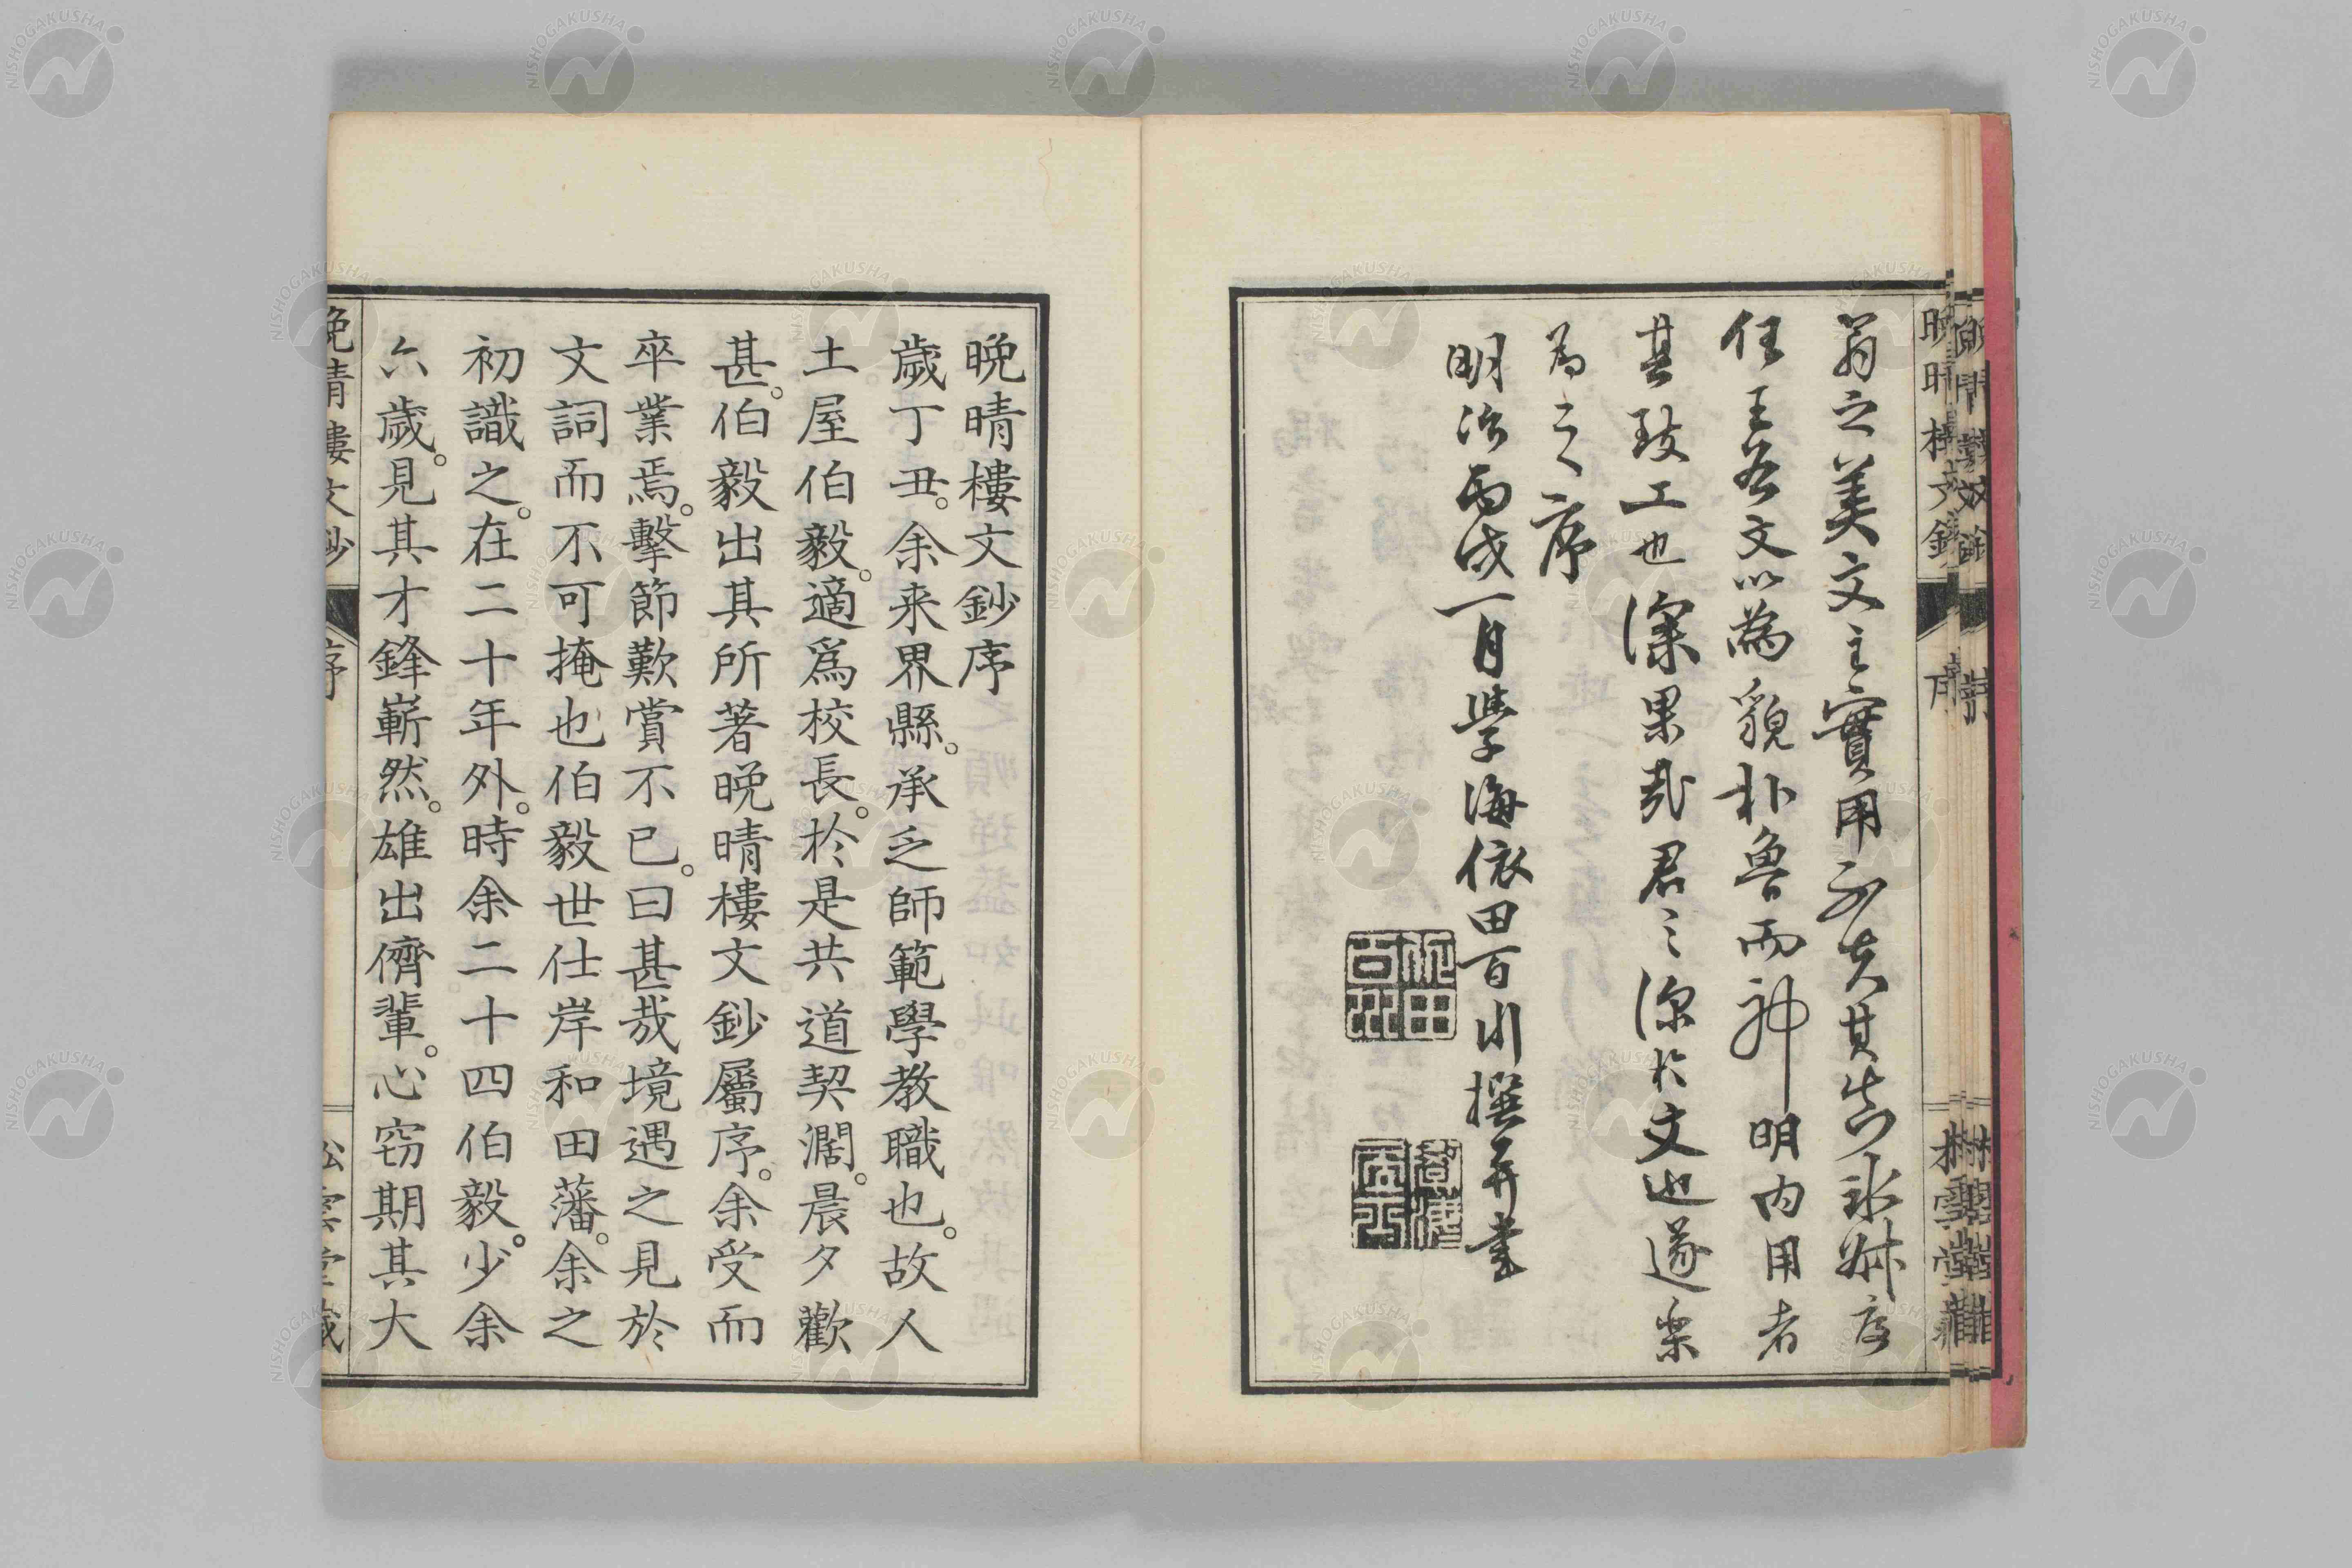 翁之美文主實用不失其真永叔存
任王為文以為貌朴魯而神明内用者
其致工也深果哉君之深於文也遂樂
為之序
明治丙戌一月學海依田百川撰并書
晚晴樓文鈔序
歲丁丑。余来界縣。承乏師範學教職也。故人
土屋伯毅。適爲校長。於是共道契濶。晨夕歡
甚。伯毅出其所著晚晴樓文鈔屬序。余受而
卒業焉。擊節歎賞不已。曰甚哉境遇之見於
文詞而不可掩也伯毅世仕岸和田藩。余之
初識之。在二十年外。時余二十四伯毅。少余
六歲。見其才鋒嶄然。雄出儕輩。心窃期其大
晚晴樓文鈔
序
松雲堂藏
NISHOGAKUSHA